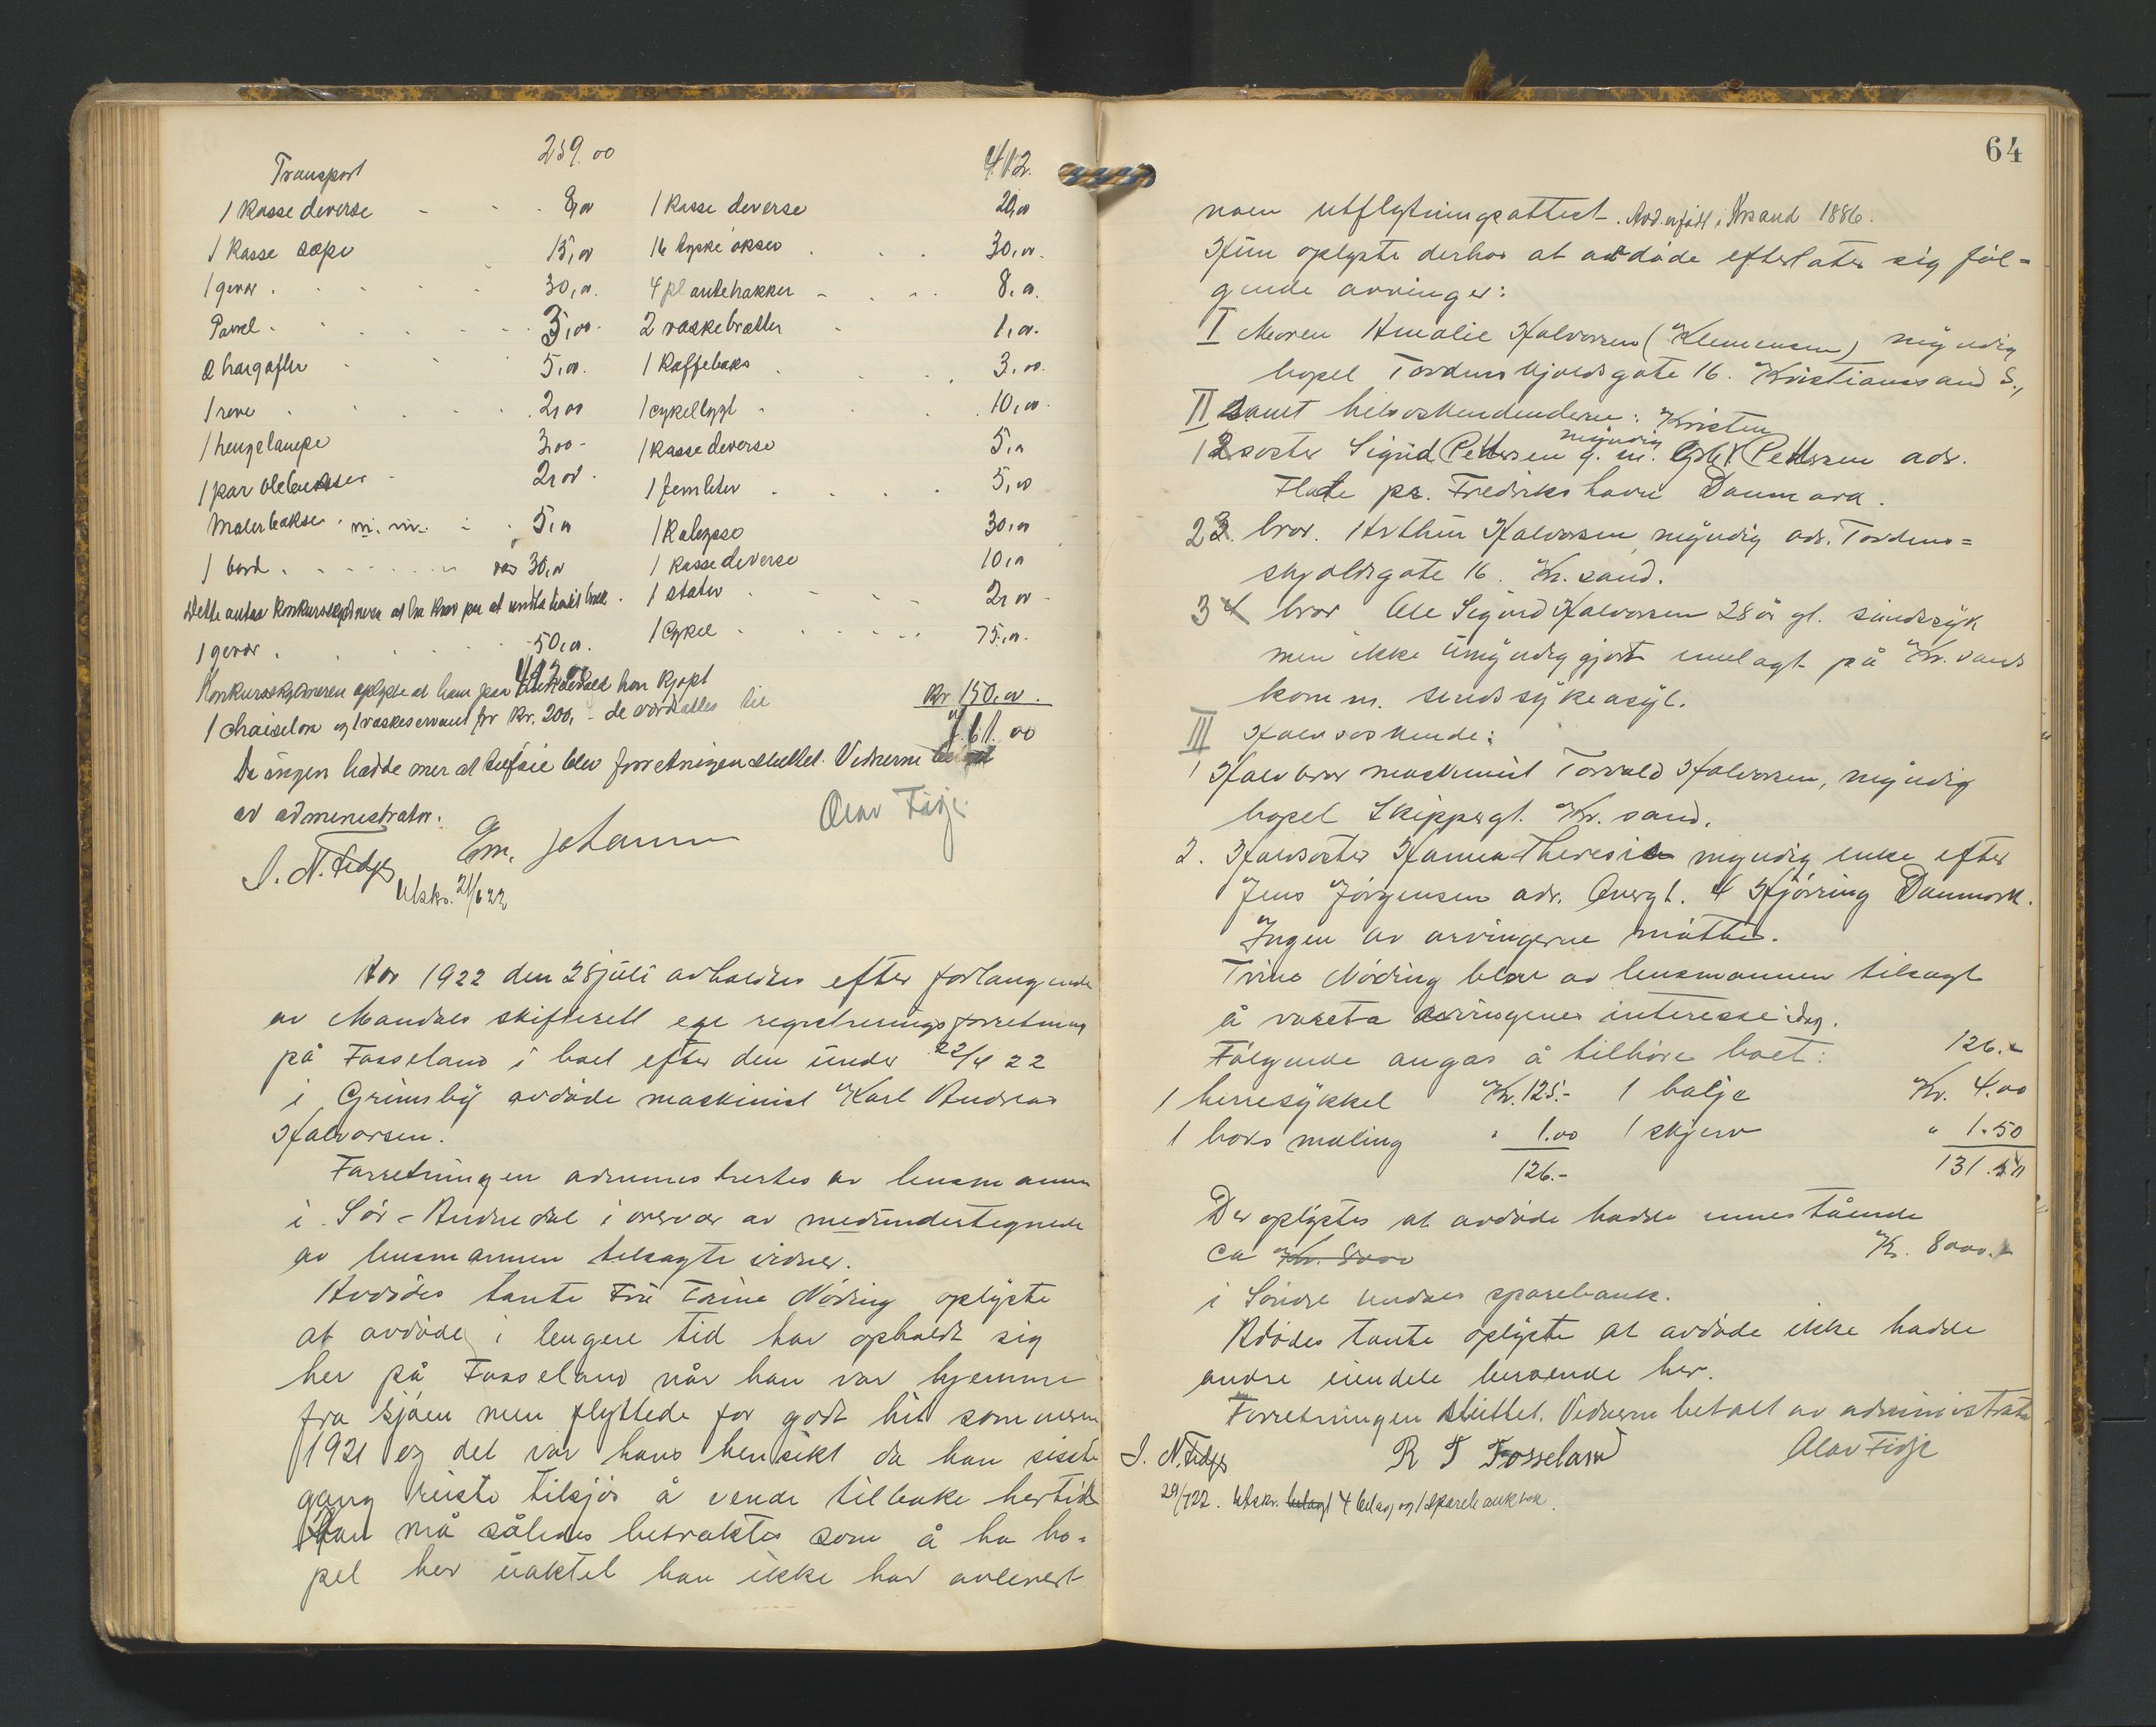 Transport 259.00 412.
1 kasse deverse 8,00 1 kasse deverse 20,00
1 kasse sæpe 15,00 16 tyske økser 30,00.
1 gevær 30,00. 4 plantehakker 8,00.
Parrel 5,00. 2 vaskebrætter 1,00.
2 høigafler 5,00. 1 kaffeboks 3.00.
1 reve 2,00 1 cykellygt 10,00.
1 hengelampe 3,00 1 kasse deverse 5,00
1 par oleebukser 2,00. 1 femliter 5,00
Malerbøkse m. m. 5,00 1 Kalesso 30,00
1 bord 30,00 1 kasse deverse 10,00
Dette antas konkursskyldneren at ha krav paa at undta
1 stativ 2,00
1 gevær 50,00. 1 Cykel 75,00.
412.00
Konkursskyldneren oplyste at ham paa har kjøpt
1 chaiselon og 1 vaskeservant for kr. 200,- de værdsattes til kr 150,00.
761.00
Da ingen hadde mer at tilføie blev forretningen sluttet. Vidnerne betalt
av administrator.
I. N. Fidje Em. Johannsen Olav Fidje.
Utskr. 21/6 22
Aar 1922 den 28 juli avholdtes efter forlangende
av Mandals skifterett ege registreringsforretning
på Fosseland i boet efter den under 22/4 22
i Grimsbÿ avdøde maskinist Karl Andreas
Halvorsen.
Forretningen administrertes av lensmannen
i Sør-Audnedal i overvær av medundertegnede
av lensmannen tilsagte vidner.
Avdødes tante Fru Trine Nøding oplyste
at avdøde i lengere tid har opholdt sig
her på Fosseland når han var hjemme
fra sjøen men flyttede for godt hit sommeren
1921 og det var hans hensikt da han siste
gang reiste tilsjøs å vende tilbake hertil
Han må således betraktes som å ha bo-
pel her uaktet han ikke har avlevert
64
noen utflytningsattest. Avd. er født i Krsand 1886.
Hun oplyste derhos at avdøde efterlater sig føl-
gende arvinger:
I Moren Amalie Halvorsen (Klemensen) mÿndig
bopel Tordenskjoldsgate 16. Kristianssand S.,
II samt helsøskendenderne: Kristen
1 søster Sigrid Pettersen myndig g. m. Pettersen adr.
Flade pr. Fredrikshavn Danmark.
2. bror. Arthur Halvorsen, mÿndig adr. Tordens-
skjoldsgate 16. Kr.sand.
3 bror Ole Sigurd Halvorsen 28 år gl. sindssÿk
men ikke ümÿndiggjort innlagt på Kr.sands
komm. sindssÿkeasÿl.
III Halvsøskende:
1 Halvbror maskinist Torvald Halvorsen, mÿndig
bopel Skippergt. Kr.sand.
2. Halvsøster Hanna Theresie myndig enke efter
Jens Jörgensen adr. Övergt. 4 Hjörring Danmark.
Ingen av arvingerne møtte.
Trine Nøding blev av lensmannen tilsagt
å vareta arvingenes interesse idag.
Følgende angas å tilhøre boet: 126.-
1 herresÿkkel Kr. 125.- 1 balje Kr. 4.00
1 boks maling " 1.00 1 skjerv " 1.50
126.- 131.50
Der oplÿstes at avdøde hadde innestående
ca Kr. 8000 Kr. 8000.-
i Søndre Undals sparebank.
Adødes tante oplÿste at avdøde ikke hadde
andre eiendele beroende her.
Forretningen sluttet. Vidnerne betalt av administrator
I. N. Fidje R T Fosseland Olav Fidje
29/7 22. Utskr. bilag 4 bilag og 1 sparebankbok.